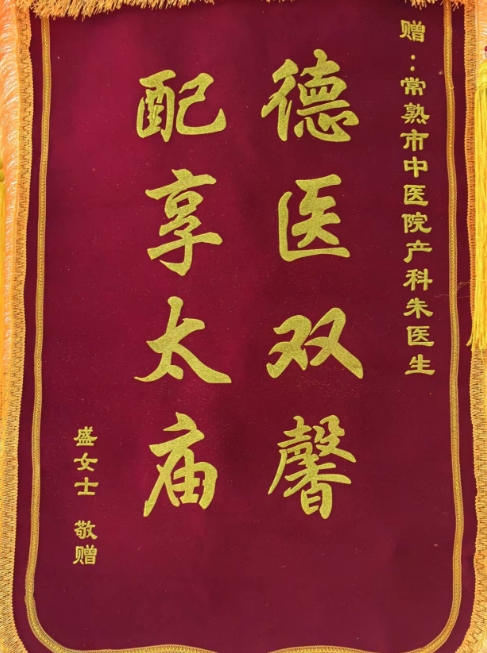 赠：常熟市中医院产科朱医生
德医双馨
配享太庙
盛女士 敬赠